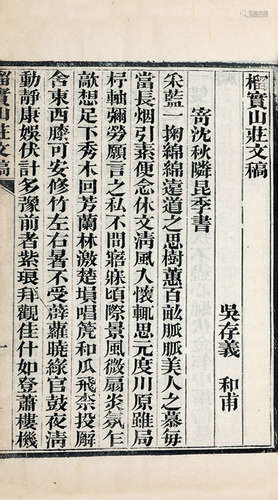 榴實山莊文稿
吳存義 和甫
寄沈秋隣昆季書
采藍一掬綿綿遠道之思樹蕙百畝脈脈美人之慕每
當長烟引素便念休文清風入懷輒思元度川原雖局
杼軸彌勞願言之私不間寤寐頃際景風微扇炎氛乍
歊想足下秀木回芳蘭林激楚塤唱箎和瓜飛柰投解
舍東西勝可安修竹左右暑不受薜蘿曉綠官鼓夜清
動靜康娛伏計多豫前者紫瓊拜觀佳什如登蕭樓機
榴實山莊文稿
一